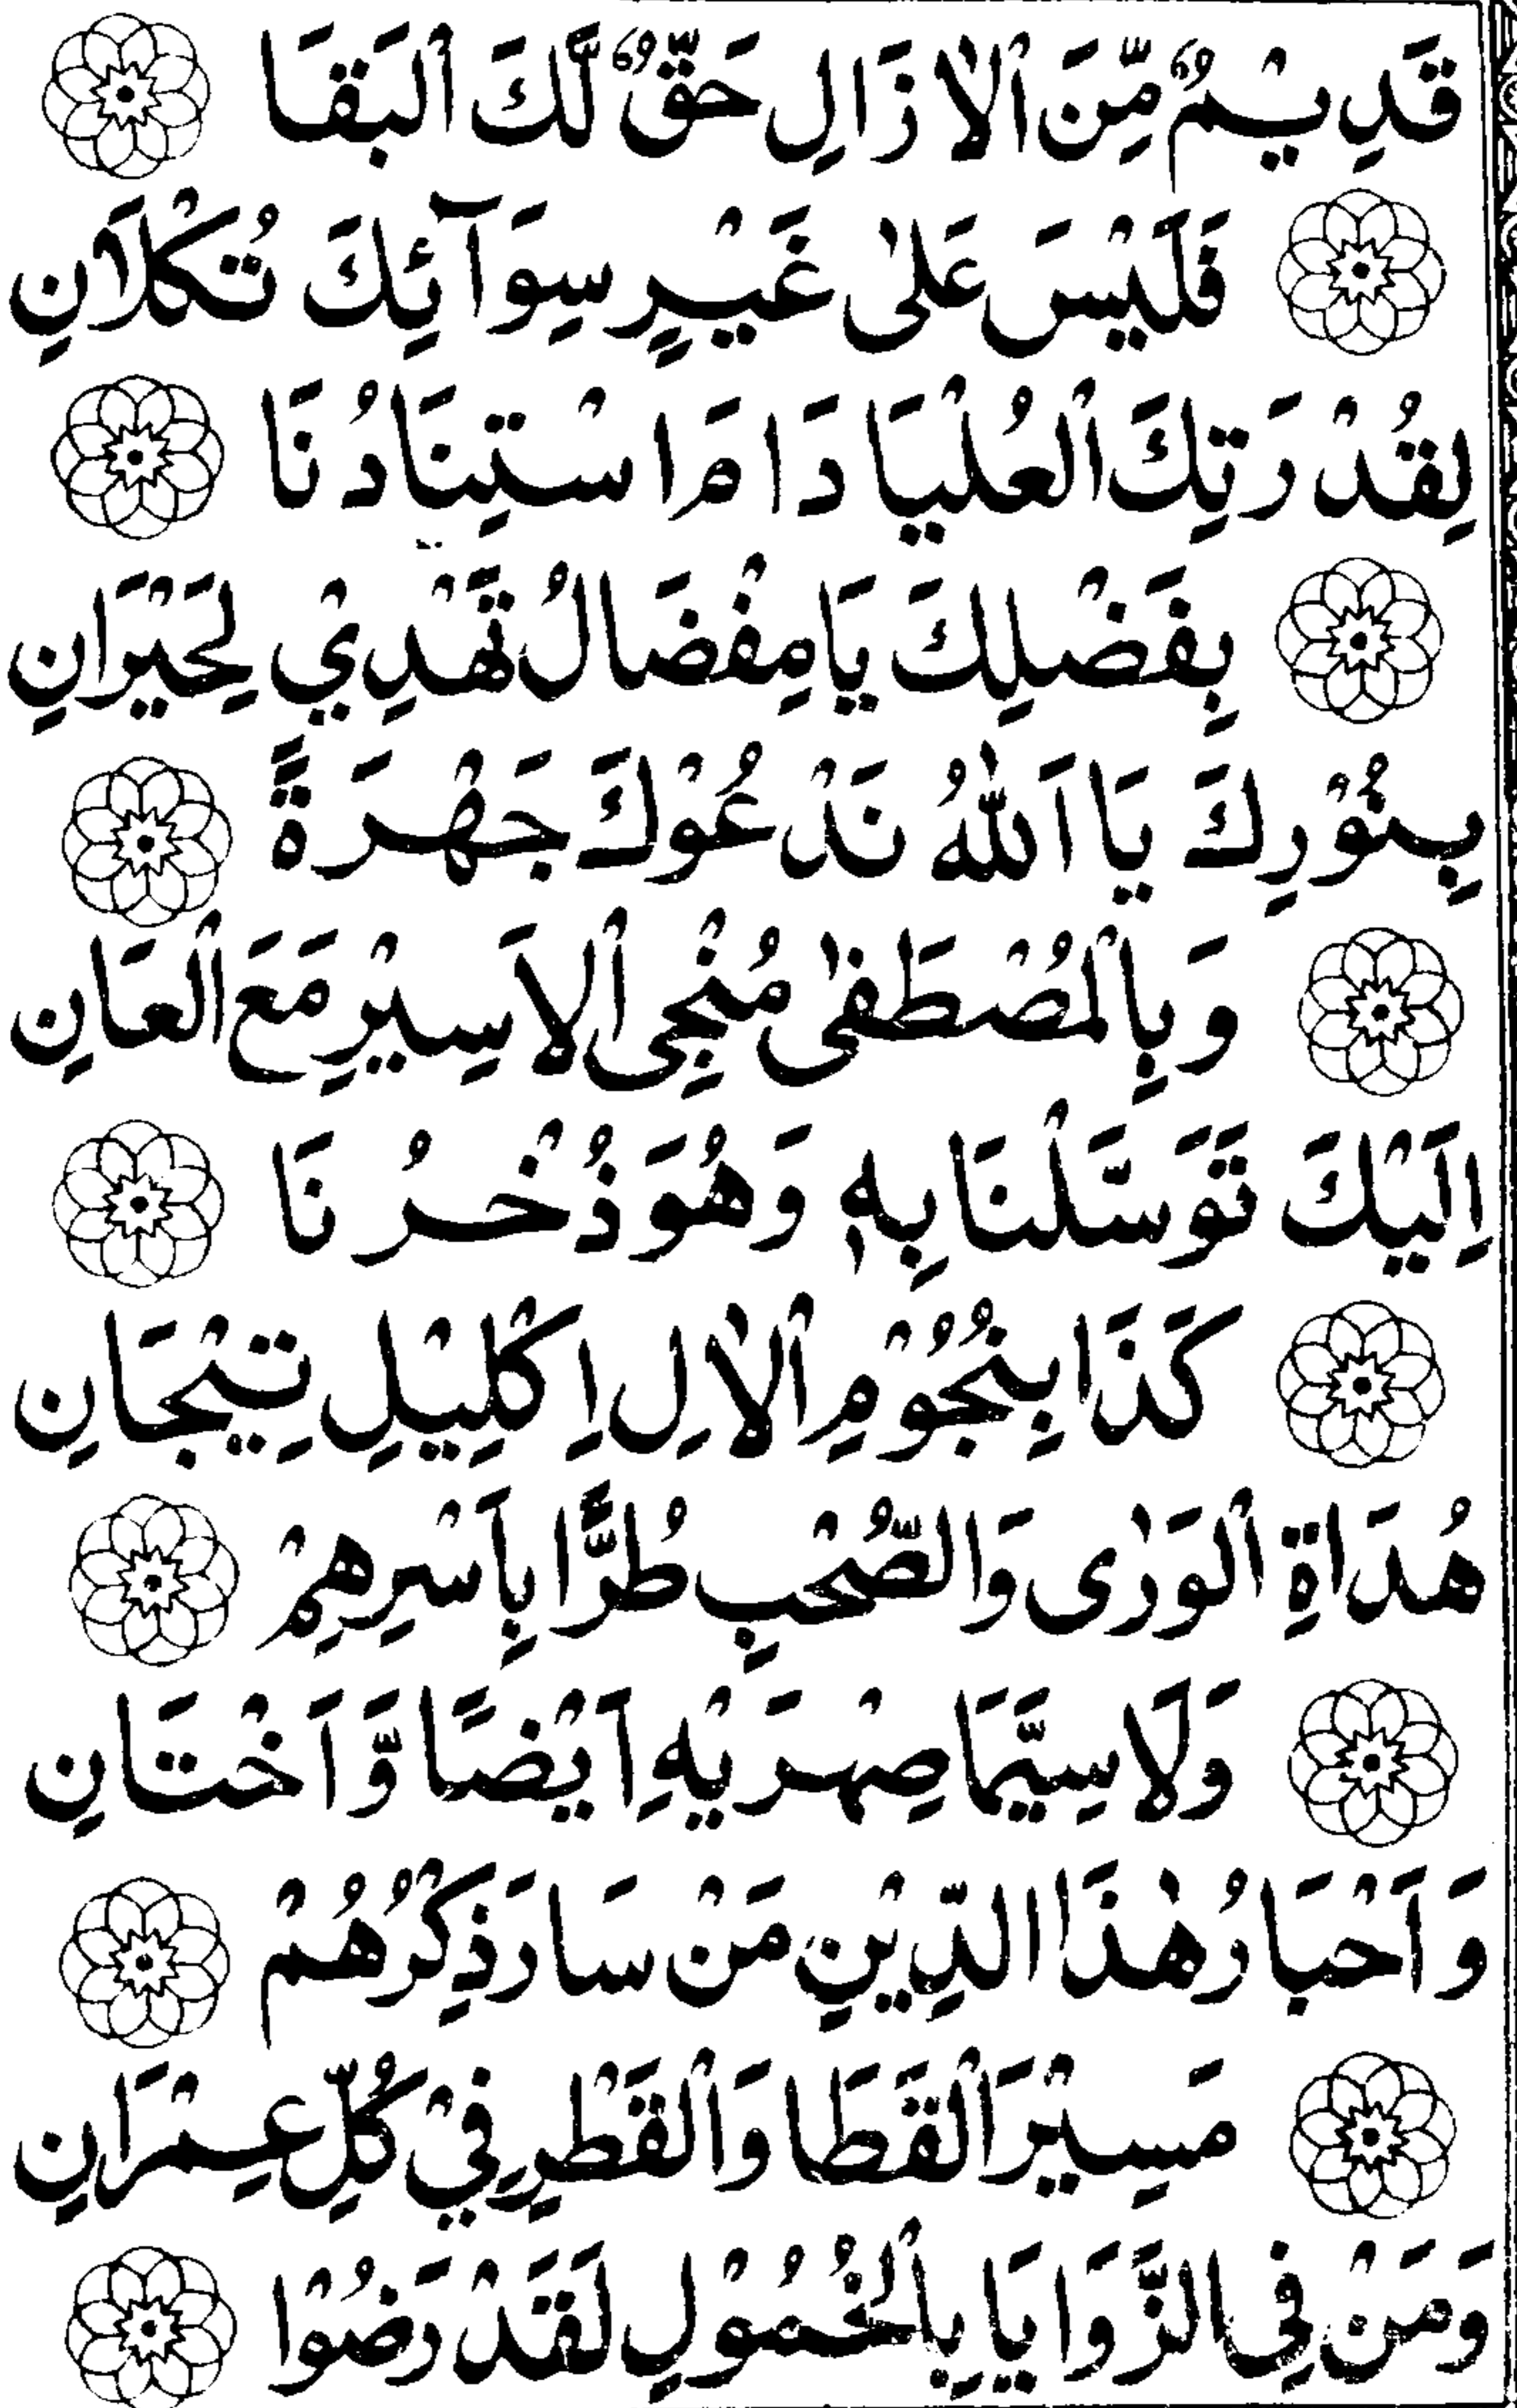 قَدِيْمٌ مِّنَ ٱلْاٰزَالِ حَقٌّ لَّكَ ٱلْبَقَا
فَلَيْسَ عَلٰى غَيْرٍ سِوَآئِكَ تُكْلَانِ
لِقُدْرَتِكَ ٱلْعُلْيَا دَامَ اسْتِنَادُنَا
بِفَضْلِكَ يَا مِفْضَالُ تَهْدِيْ لِحَيْرَانِ
بِنُوْرِكَ يَا اَللّٰهُ نَدْعُوْكَ جَهْرَةً
وَبِالْمُصْطَفٰى مُنْجِى ٱلْاَسِيْرِ مَعَ ٱلْعَانِ
اِلَيْكَ تَوَسَّلْنَا بِهٖ وَهُوَ ذُخْرُنَا
كَذَا بِنُجُوْمِ ٱلْاٰلِ اِكْلِيْلِ تِيْجَانِ
هُدَاةِ ٱلْوَرٰى وَالصَّحْبِ طُرًّا بِاَسْرِهِمْ
وَلَا سِيَّمَا صِهْرَيْهِ اَيْضًا وَّاَخْتَانِ
وَاَحْبَارُ هٰذَا الدِّيْنِ مَنْ سَارَ ذِكْرُهُمْ
مَسِيْرَ ٱلْقَطَا وَٱلْقَطْرِ فِيْ كُلِّ عِمْرَانِ
وَمَنْ فِى الزَّوَايَا بِالْخُمُوْلِ لَقَدْ رَضُوْا